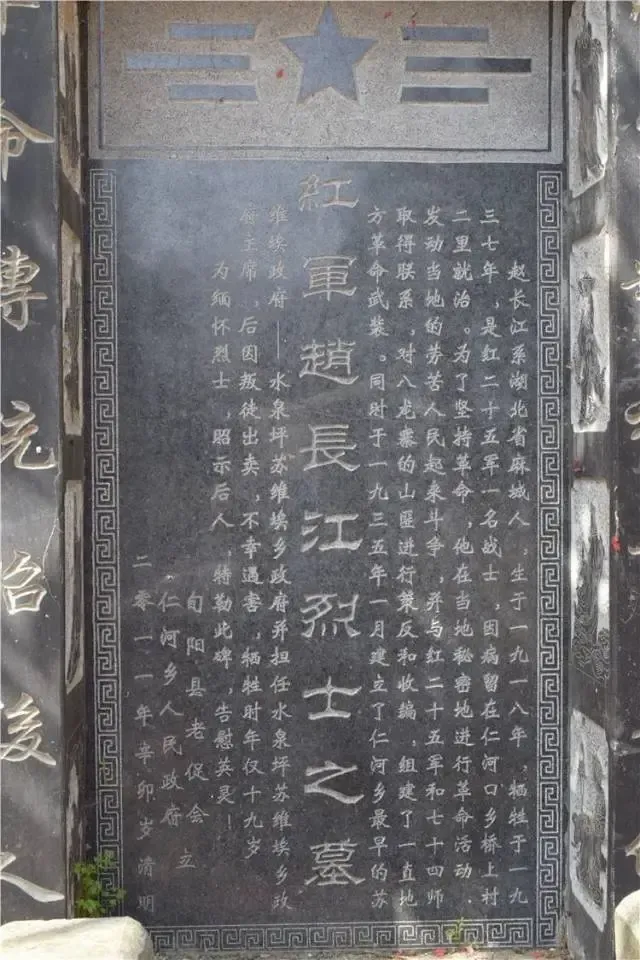 赵长江系湖北省麻城人，生于一九一八年，牺牲于一九
三七年，是红二十五军一名战士，因病留在仁河口乡桥上村
二里就治。为了坚持革命，他在当地秘密地进行革命活动．
发动当地的劳苦人民起来斗争，并与红二十五军和七十四师
取得联系，对八龙寨的山匪进行策反和收编，组建了一直地
方革命武装。同时于一九三五年一月建立了仁河乡最早的苏
紅軍趙長江烈士之墓
维埃政府——水泉坪苏维埃乡政府并担任水泉坪苏维埃乡政
府主席，后因叛徒出卖，不幸遇害，牺牲时年仅十九岁
为缅怀烈士，昭示后人，特勒此碑，告慰英灵！
旬阳县老促会
仁河乡人民政府
立
二零一一年辛卯岁清明
命傳元